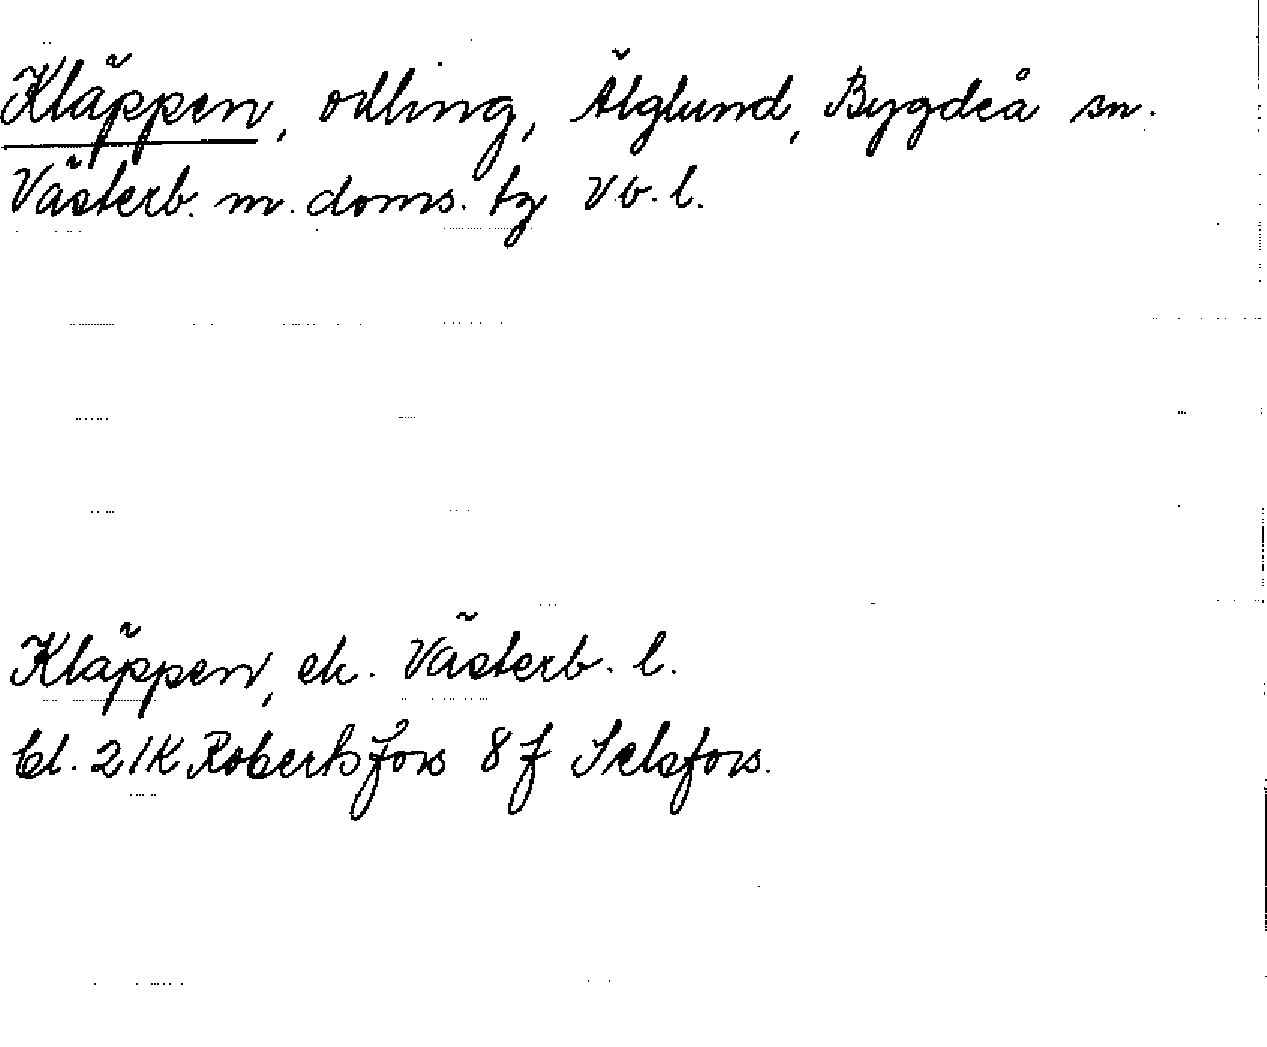 Kläppen, odling, Älglund, Bygdeå sn.
Västerb. m. doms. tg Vb. l.
Kläppen, ek. Västerb. l.
bl. 21K Robertsfors 8 f Selsfors.